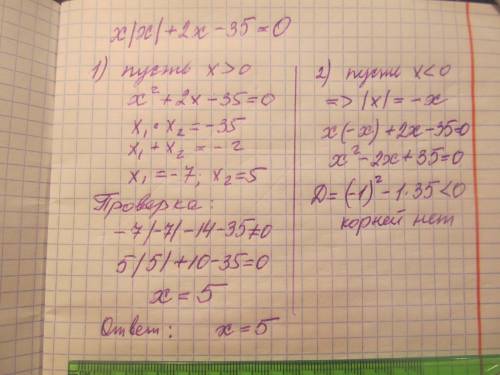 x|x|+2x-35=0
1) пусть x>0
x²+2x-35=0
x₁·x₂=-35
x₁+x₂=-2
x₁=-7; x₂=5
Проверка:
-7|-7|-14-35≠0
5|5|+10-35=0
x=5
Ответ: x=5
2) пусть x<0
=> |x|=-x
x(-x)+2x-35=0
x²-2x+35=0
D=(-1)²-1·35<0
корней нет